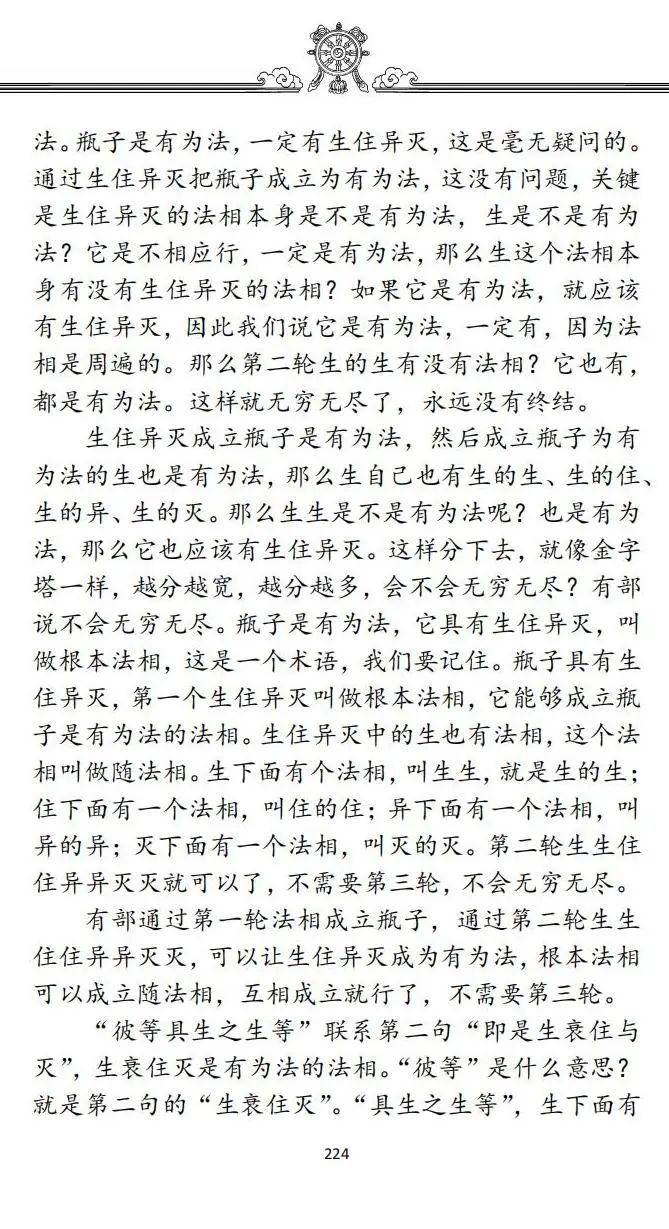 法。瓶子是有为法，一定有生住异灭，这是毫无疑问的。
通过生住异灭把瓶子成立为有为法，这没有问题，关键
是生住异灭的法相本身是不是有为法，生是不是有为
法？它是不相应行，一定是有为法，那么生这个法相本
身有没有生住异灭的法相？如果它是有为法，就应该
有生住异灭，因此我们说它是有为法，一定有，因为法
相是周遍的。那么第二轮生的生有没有法相？它也有，
都是有为法。这样就无穷无尽了，永远没有终结。
生住异灭成立瓶子是有为法，然后成立瓶子为有
为法的生也是有为法，那么生自己也有生的生、生的住、
生的异、生的灭。那么生生是不是有为法呢？也是有为
法，那么它也应该有生住异灭。这样分下去，就像金字
塔一样，越分越宽，越分越多，会不会无穷无尽？有部
说不会无穷无尽。瓶子是有为法，它具有生住异灭，叫
做根本法相，这是一个术语，我们要记住。瓶子具有生
住异灭，第一个生住异灭叫做根本法相，它能够成立瓶
子是有为法的法相。生住异灭中的生也有法相，这个法
相叫做随法相。生下面有个法相，叫生生，就是生的生；
住下面有一个法相，叫住的住；异下面有一个法相，叫
异的异；灭下面有一个法相，叫灭的灭。第二轮生生住
住异异灭灭就可以了，不需要第三轮，不会无穷无尽。
有部通过第一轮法相成立瓶子，通过第二轮生生
住住异异灭灭，可以让生住异灭成为有为法，根本法相
可以成立随法相，互相成立就行了，不需要第三轮。
“彼等具生之生等”联系第二句“即是生衰住与
灭”，生衰住灭是有为法的法相。“彼等”是什么意思？
就是第二句的“生衰住灭”。“具生之生等”，生下面有
224